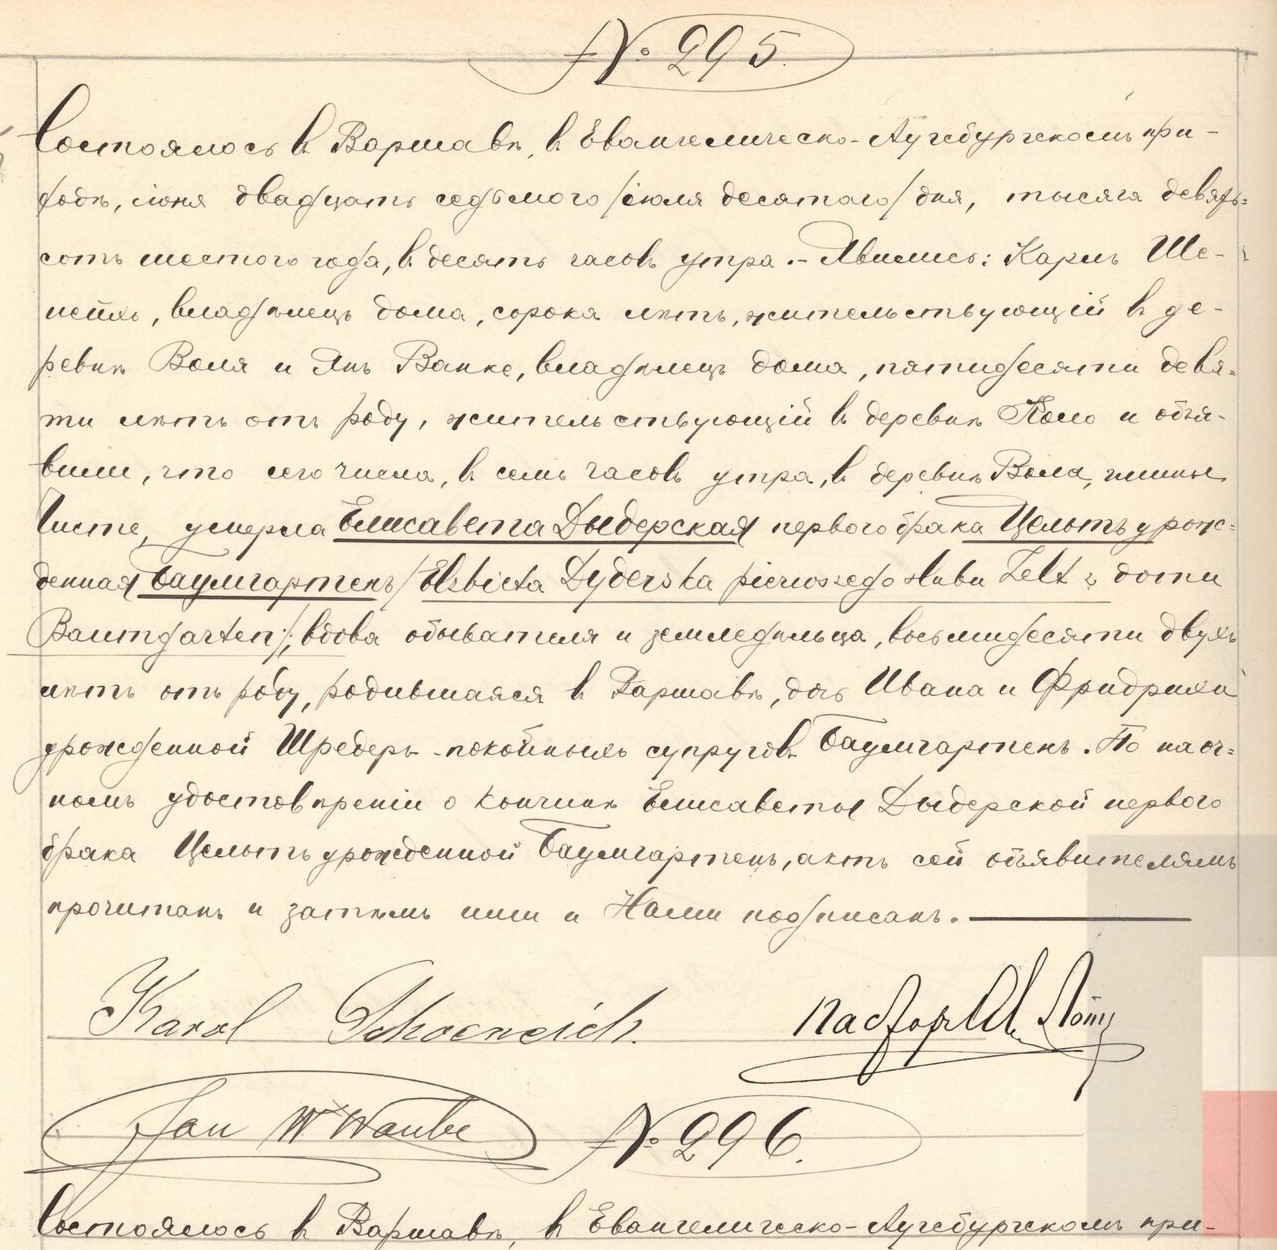 № 295.
Состоялось въ Варшавѣ, въ Евангелическо-Аугсбургскомъ при-
ходѣ, iюня двадцать седьмого /iюля десятаго/ дня, тысяча девять-
сотъ шестого года, въ десять часовъ утра. – Явились: Карлъ Ше-
нейхъ, владѣлецъ дома, сорока лѣтъ, жительствующiй въ де-
ревнѣ Воля и Янъ Ванке, владѣлецъ дома, пятидесяти девя-
ти лѣтъ отъ роду, жительствующiй въ деревнѣ Коло и объя-
вили, что сего числа, въ семь часовъ утра, въ деревнѣ Воля, гмины
Чисте, умерла Елисавета Дыдерская первого брака Цельтъ урож-
денная Баумгартенъ /Elzbieta Dyderska pierwszego ślubu Zelt z domu
Baumgarten/, вдова обывателя и земледѣльца, восьмидесяти двухъ
лѣтъ отъ роду, родившаяся въ Варшавѣ, дочь Ивана и Фридрики
урожденной Шредеръ – покойныхъ супруговъ Баумгартенъ. По наоч-
номъ удостовѣренiи о кончинѣ Елисаветы Дыдерской первого
брака Цельтъ урожденной Баумгартенъ, актъ сей объявителямъ
прочитанъ и затѣмъ ими и Нами подписанъ.
Karol Schoeneich. Пасторъ
Jan W Wanke № 296.
Состоялось въ Варшавѣ, въ Евангелическо-Аугсбургскомъ при-